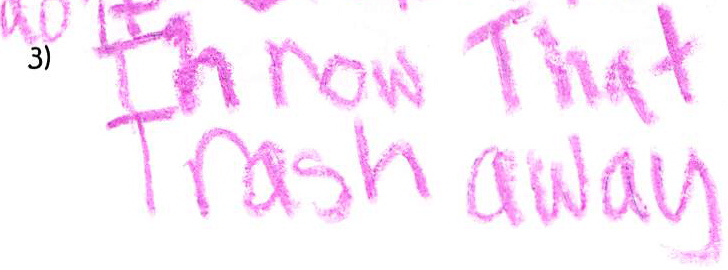 3) Throw That
Trash away